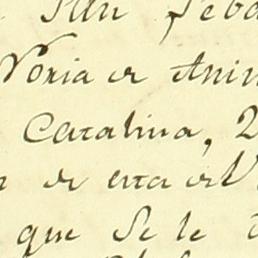 San Seba
Noria de Anim
Catalina, 2
de esta de V
que se le